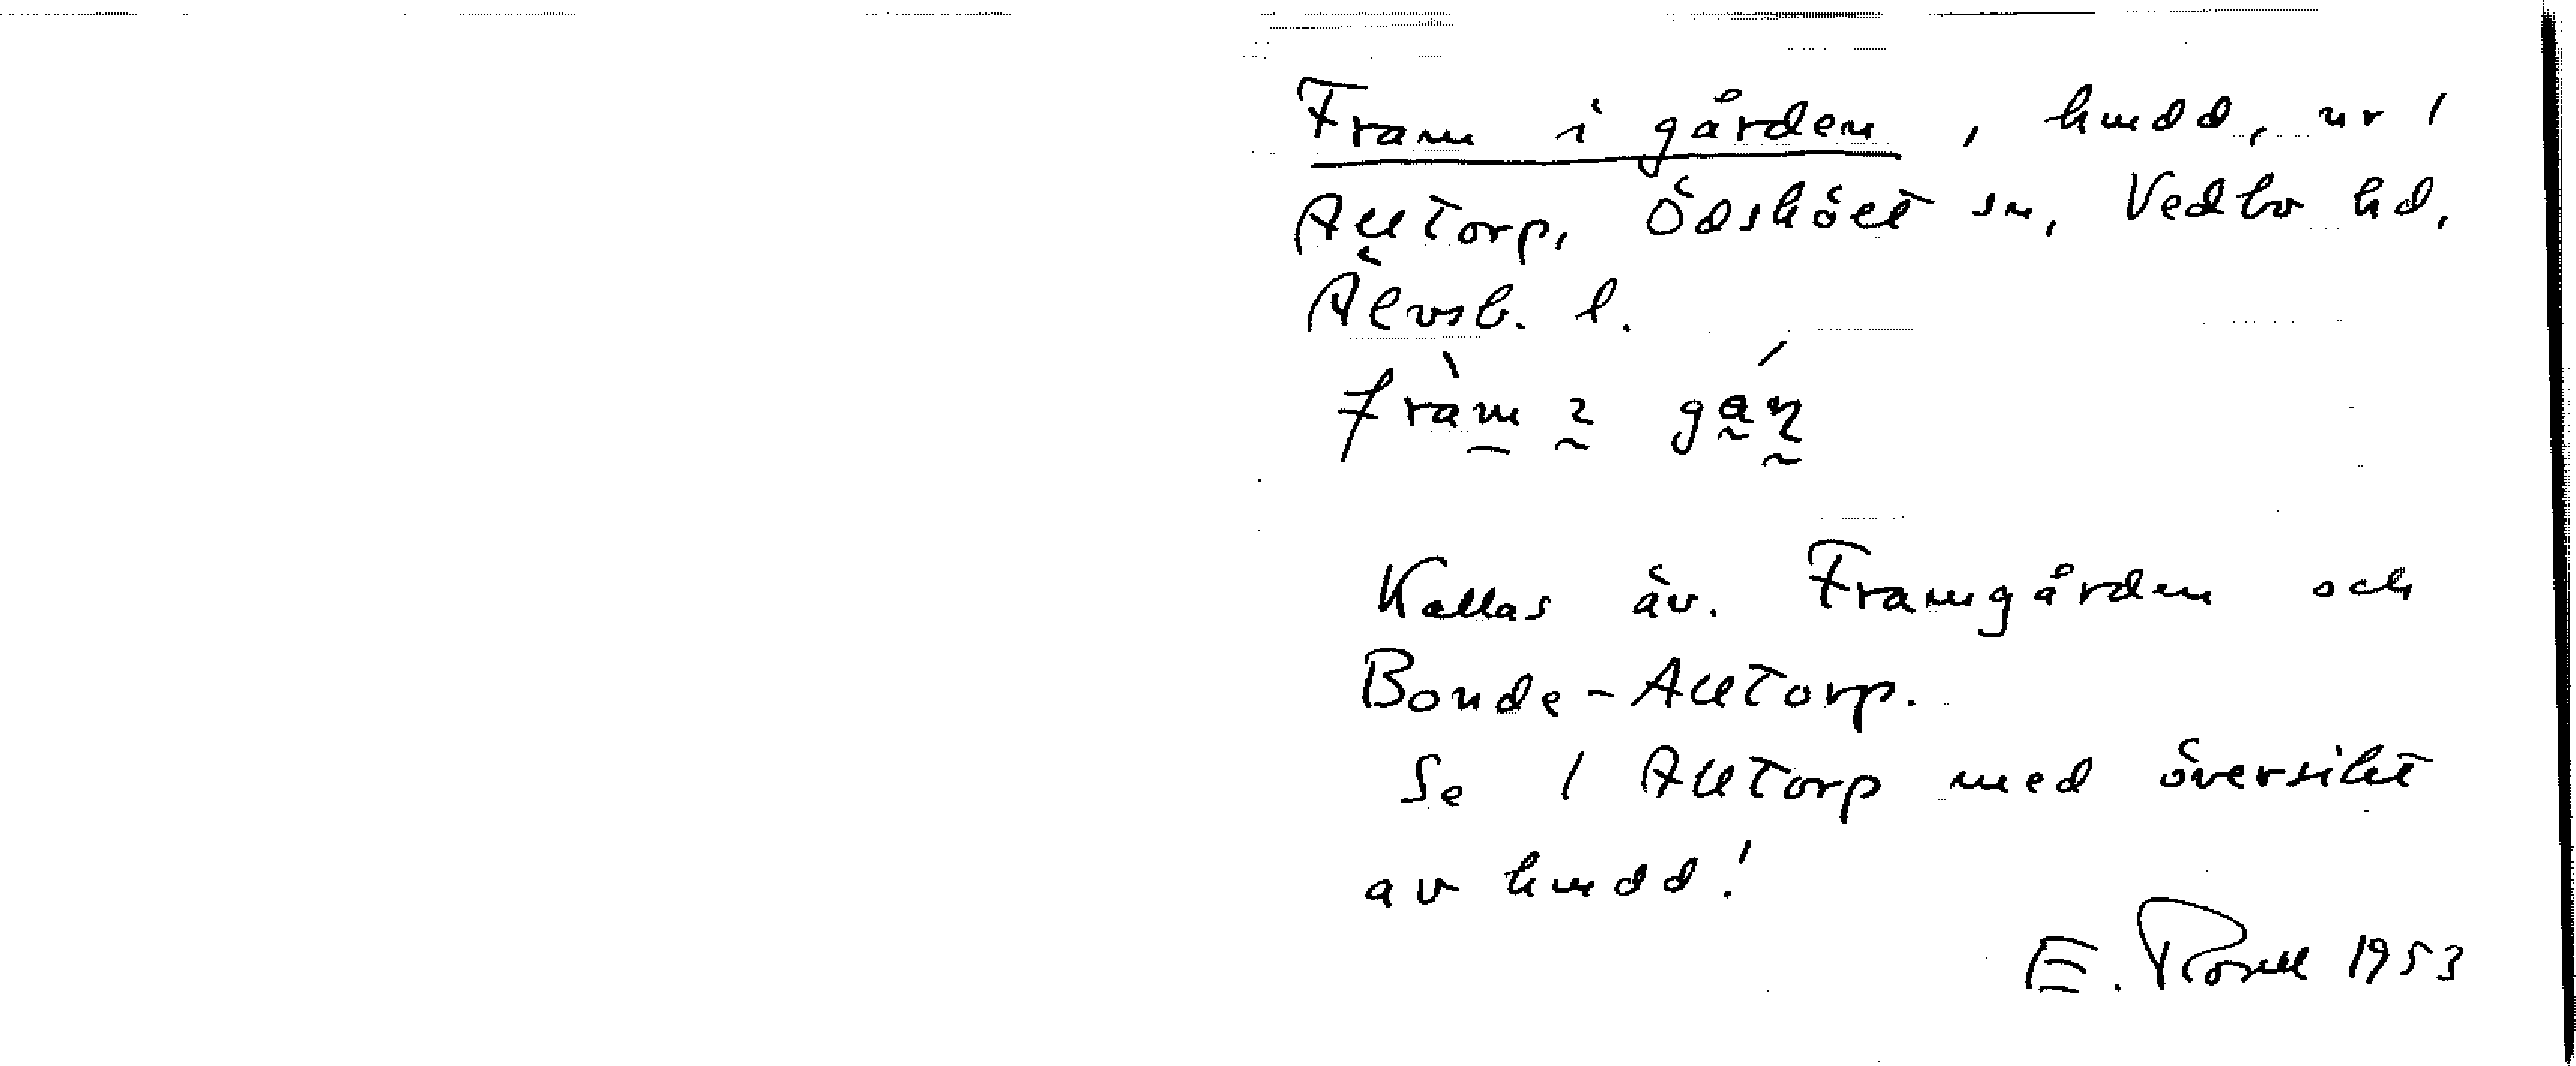 Fram i gården, hmdd, nr 1
Alltorp, Ödsköelt sn, Vedbo hd,
Älvsb. l.
Kallas äv. Framgården och
Bonde-Alltorp.
Se 1 Alltorp med översikt
av hmdd!
E. Rosell 1953